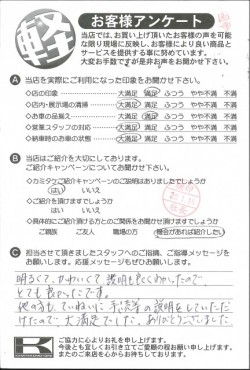 軽
お客様アンケート
当店では、お買い上げ頂いたお客様の声を可能
な限り現場に反映し、お客様により良い商品と
サービスを提供する事に努めています。
大変お手数ですが是非お声をお聞かせ下さい。
A 当店を実際にご利用になった印象をお聞かせ下さい。
◇店の印象 大満足 満足 ふつう やや不満 不満
◇店内・展示場の清掃 大満足 満足 ふつう やや不満 不満
◇お車の品揃え 大満足 満足 ふつう やや不満 不満
◇営業スタッフの対応 大満足 満足 ふつう やや不満 不満
◇納車時のお車の状態 大満足 満足 ふつう やや不満 不満
B 当店はご紹介を大切にしております。
ご紹介キャンペーンについてお聞かせ下さい。
◇カミタケご紹介キャンペーンのご説明はありましたでしょうか
はい いいえ
◇ご紹介を頂けますでしょうか
はい いいえ
◇具体的にご紹介頂ける方とのご関係をお聞かせ頂けますでしょうか
ご親族 ご友人 職場の方 機会があれば紹介したい
C 担当させて頂きましたスタッフへのご指摘、ご指導メッセージを
お願いします。応援メッセージもぜひお願いします。
明るくて、かわいくて 説明も良くわかったので
とても良かったです。
他の方も ていねいに 手続等の説明をしていただ
けたので 大満足でした。ありがとうございました
K
ご協力に心よりお礼を申し上げます。
今後とも宜しくお引き立てご愛顧の程お願い申し上げます。
またのご来店を心からお待ちしております。